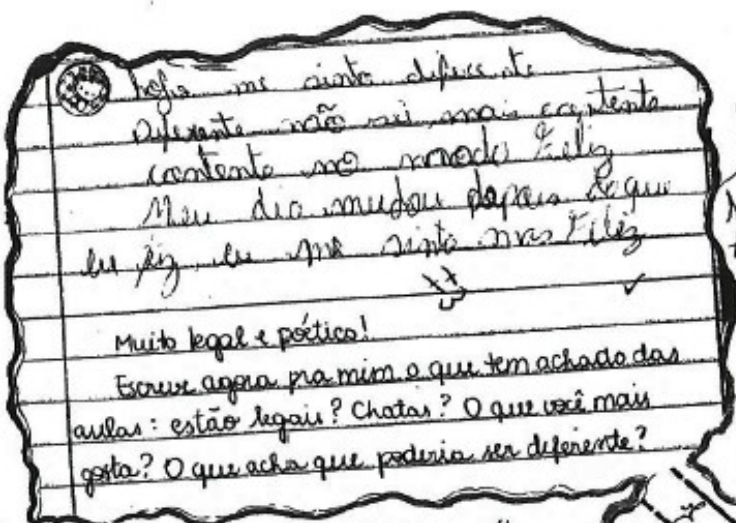 hoje me sinto diferente
Diferente não sei mais contente
contente no modo Feliz
Meu dia mudou depois do que
eu fiz eu me sinto mas Feliz
Muito legal e poético!
Escreve agora pra mim o que tem achado das
aulas: estão legais? Chatas? O que você mais
gosta? O que acha que poderia ser diferente?